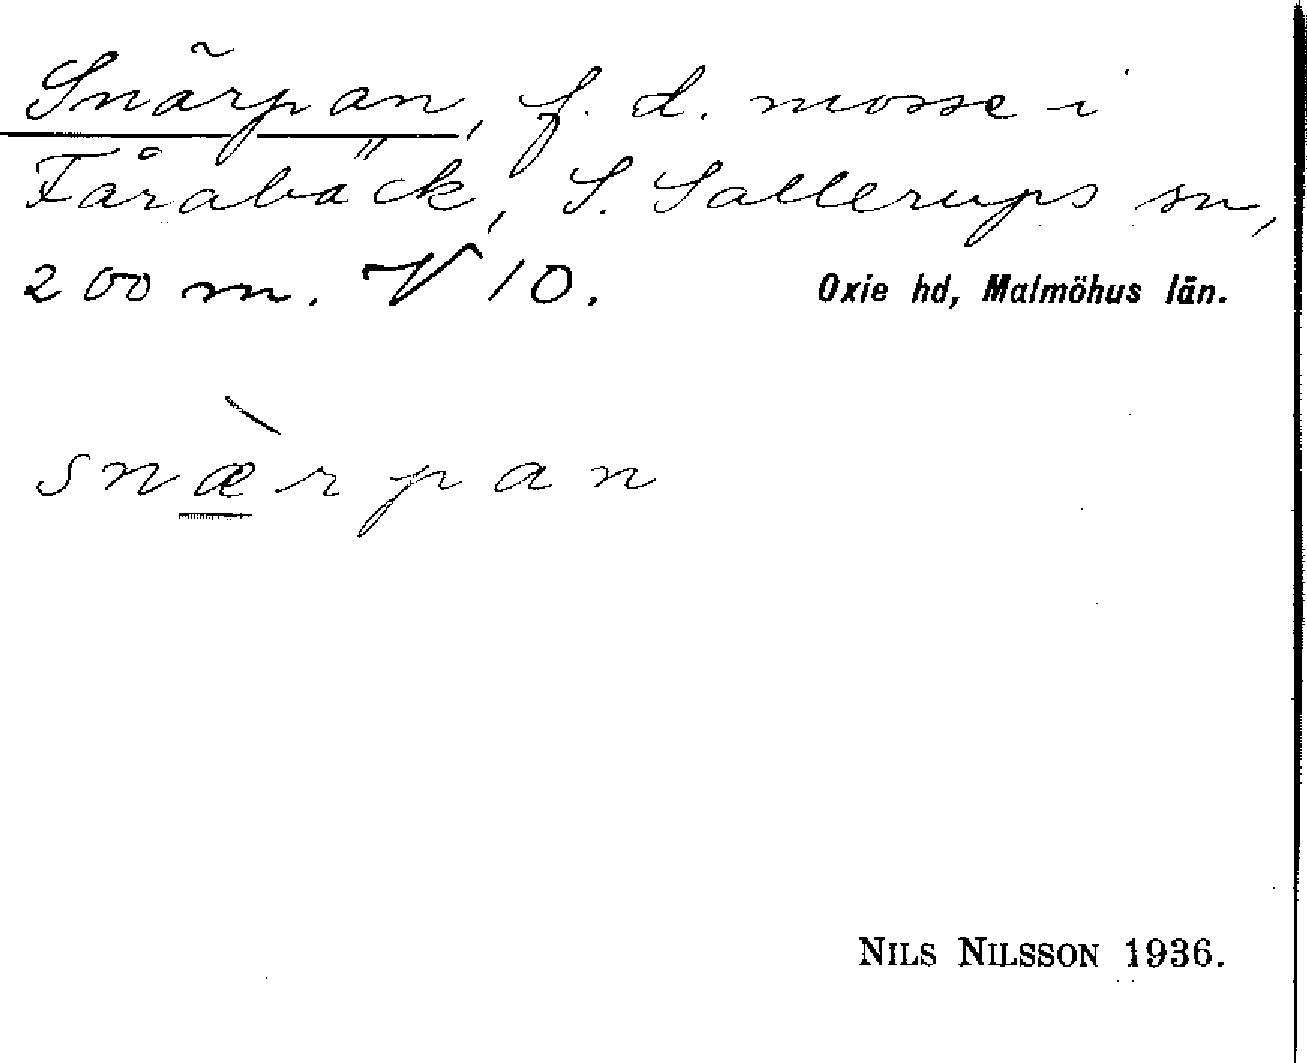 Snärpan, f. d. mosse i
Fårabäck, S. Sallerups sn,
200 m. V 10. Oxie hd, Malmöhus län.
snæ̀rpan
NILS NILSSON 1936.